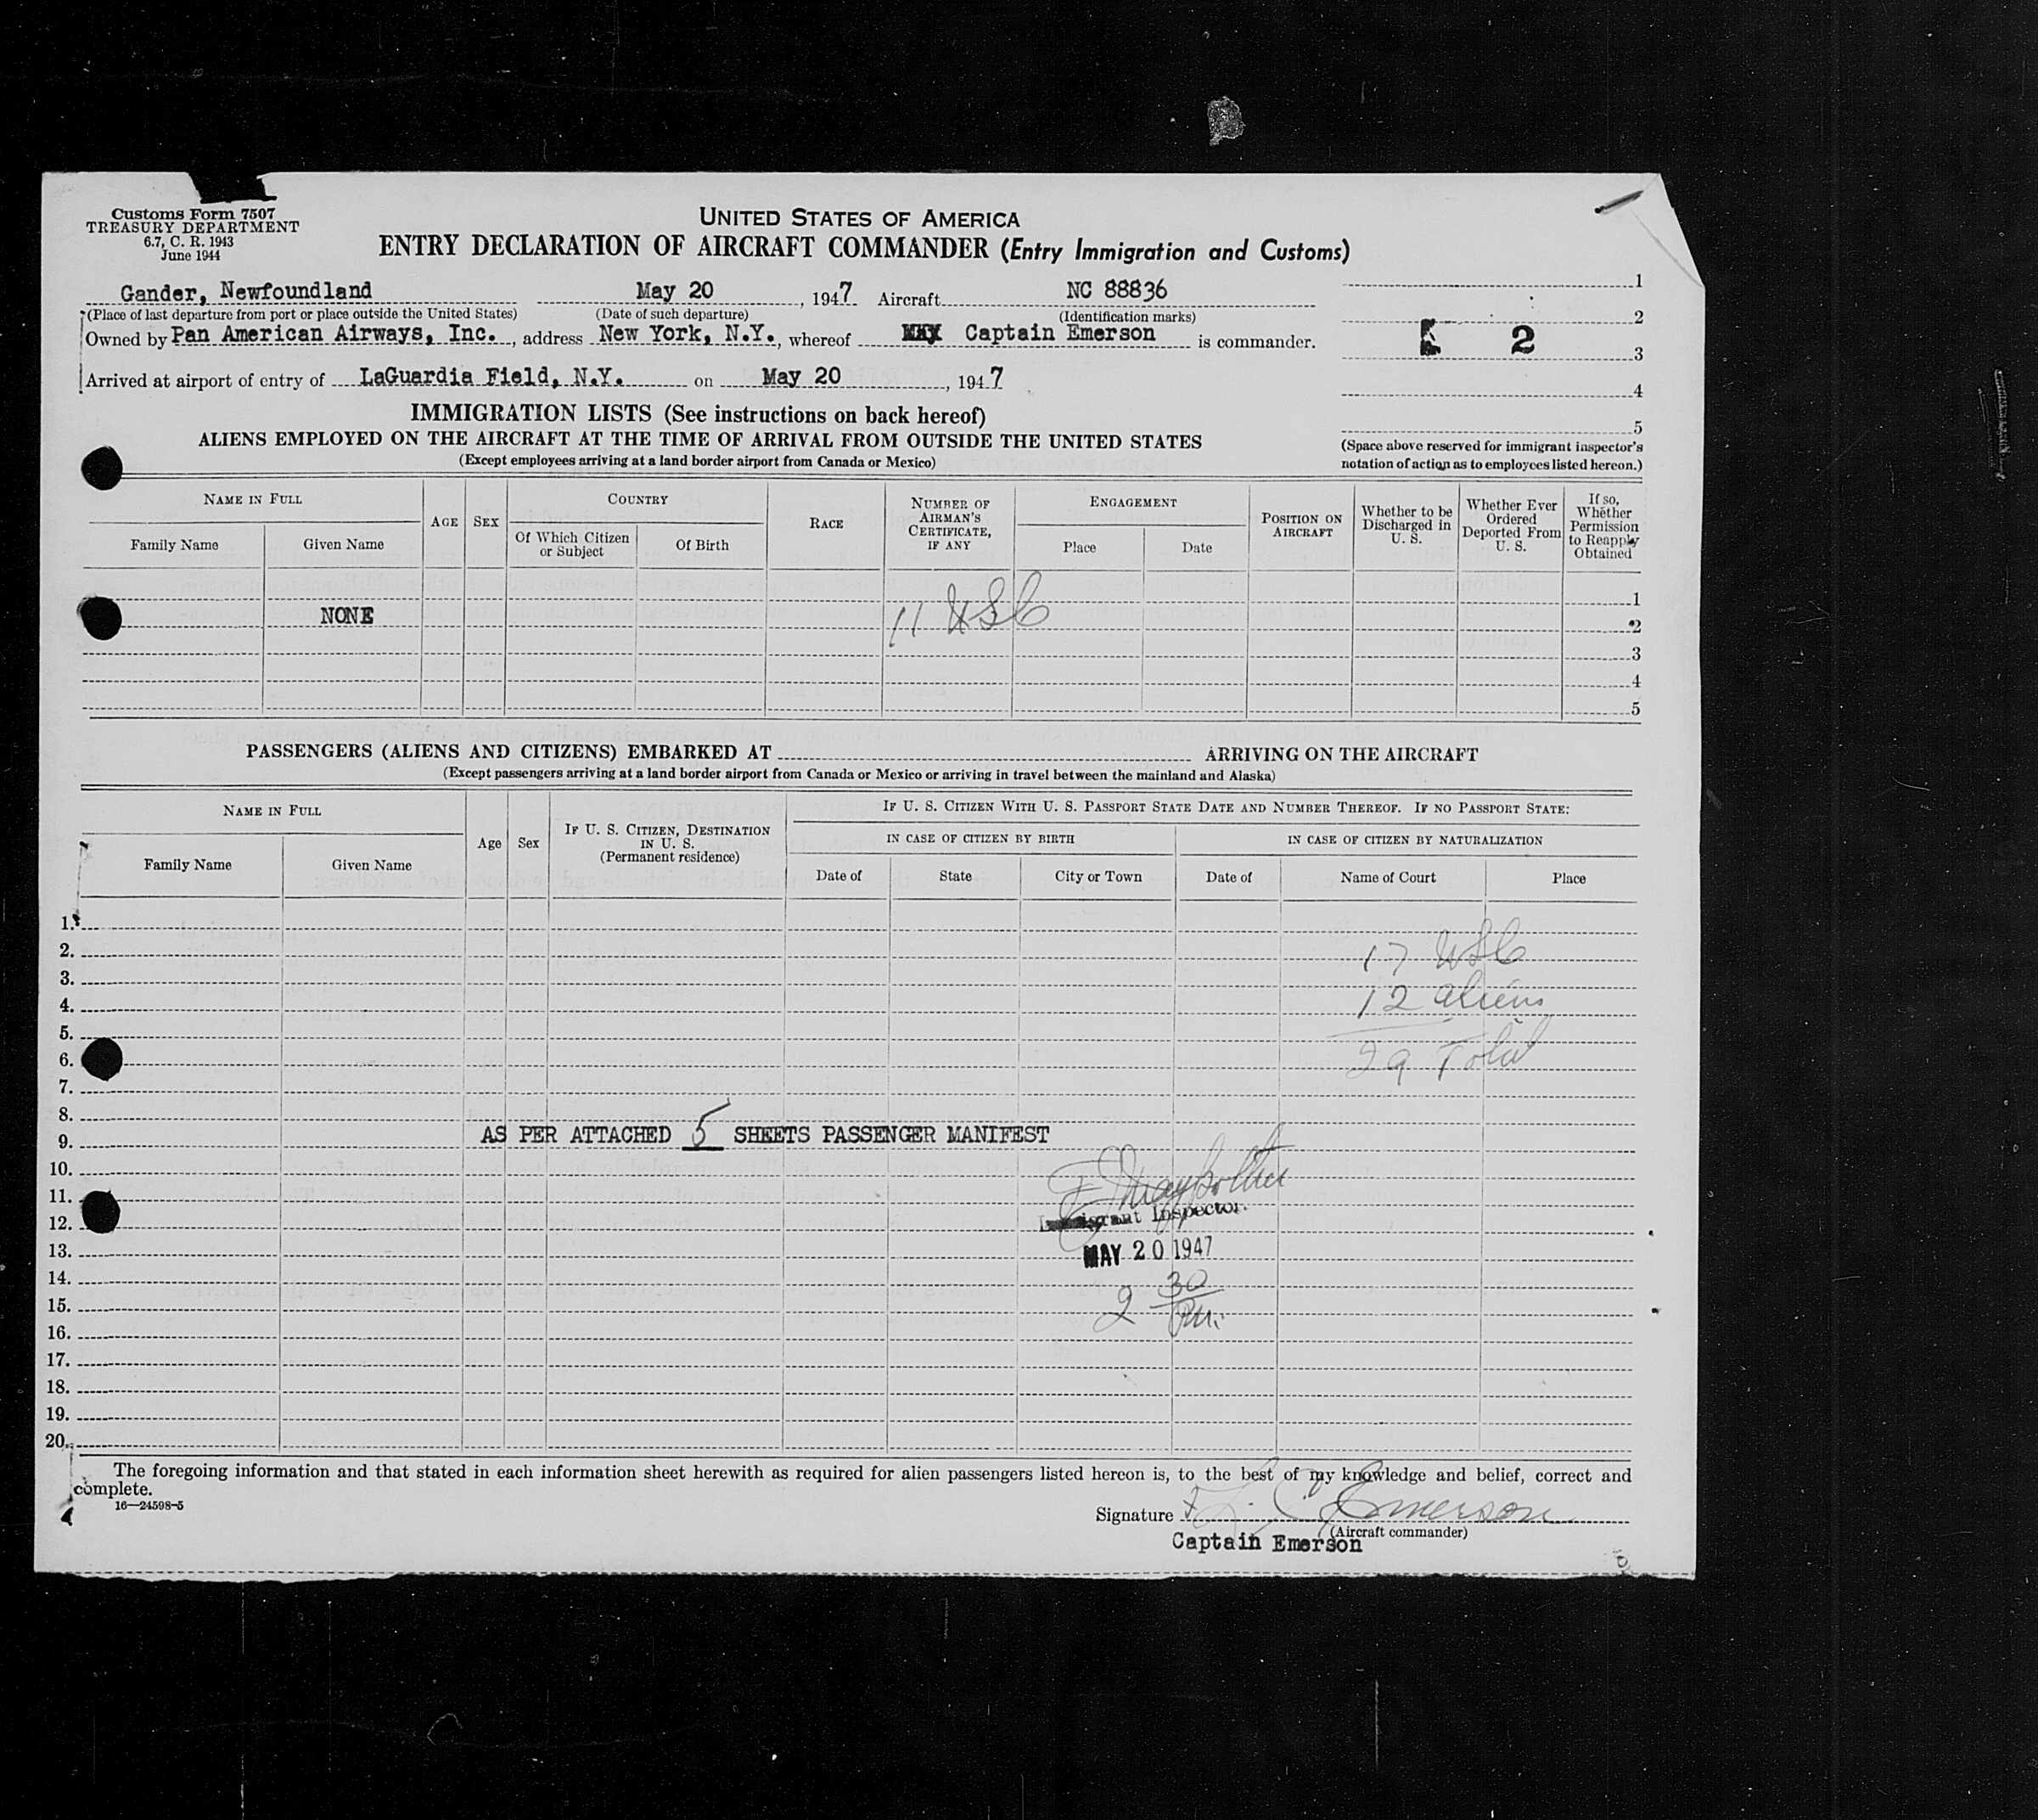 Customs Form 7507
TREASURY DEPARTMENT
6.7, C. R. 1943
June 1944
UNITED STATES OF AMERICA
ENTRY DECLARATION OF AIRCRAFT COMMANDER (Entry Immigration and Customs)
Gander, Newfoundland May 20, 1947 Aircraft NC 88836
(Place of last departure from port or place outside the United States) (Date of such departure) (Identification marks)
Owned by Pan American Airways, Inc., address New York, N.Y., whereof Captain Emerson is commander.
Arrived at airport of entry of LaGuardia Field, N.Y. on May 20, 1947
1
2
2
3
4
5
(Space above reserved for immigrant inspector's
notation of action as to employees listed hereon.)
IMMIGRATION LISTS (See instructions on back hereof)
ALIENS EMPLOYED ON THE AIRCRAFT AT THE TIME OF ARRIVAL FROM OUTSIDE THE UNITED STATES
(Except employees arriving at a land border airport from Canada or Mexico)
NAME IN FULL
Family Name
Given Name
AGE
SEX
COUNTRY
Of Which Citizen
or Subject
Of Birth
RACE
NUMBER OF
AIRMAN'S
CERTIFICATE,
IF ANY
ENGAGEMENT
Place
Date
POSITION ON
AIRCRAFT
Whether to be
Discharged in
U. S.
Whether Ever
Ordered
Deported From
U. S.
If so,
Whether
Permission
to Reapply
Obtained
1
NONE 11 USC
2
3
4
5
PASSENGERS (ALIENS AND CITIZENS) EMBARKED AT ARRIVING ON THE AIRCRAFT
(Except passengers arriving at a land border airport from Canada or Mexico or arriving in travel between the mainland and Alaska)
NAME IN FULL
Family Name
Given Name
Age
Sex
IF U. S. CITIZEN, DESTINATION
IN U. S.
(Permanent residence)
IF U. S. CITIZEN WITH U. S. PASSPORT STATE DATE AND NUMBER THEREOF. IF NO PASSPORT STATE:
IN CASE OF CITIZEN BY BIRTH
IN CASE OF CITIZEN BY NATURALIZATION
Date of
State
City or Town
Date of
Name of Court
Place
1.
2. 17 USC
3.
4. 12 aliens
5.
6. 29 Total
7.
8.
9. AS PER ATTACHED 5 SHEETS PASSENGER MANIFEST
10.
11.
12. Immigrant Inspector.
13. MAY 20 1947
14.
15. 2 30 PM.
16.
17.
18.
19.
20.
The foregoing information and that stated in each information sheet herewith as required for alien passengers listed hereon is, to the best of my knowledge and belief, correct and
complete.
16—24598-5
Signature Emerson
(Aircraft commander)
Captain Emerson